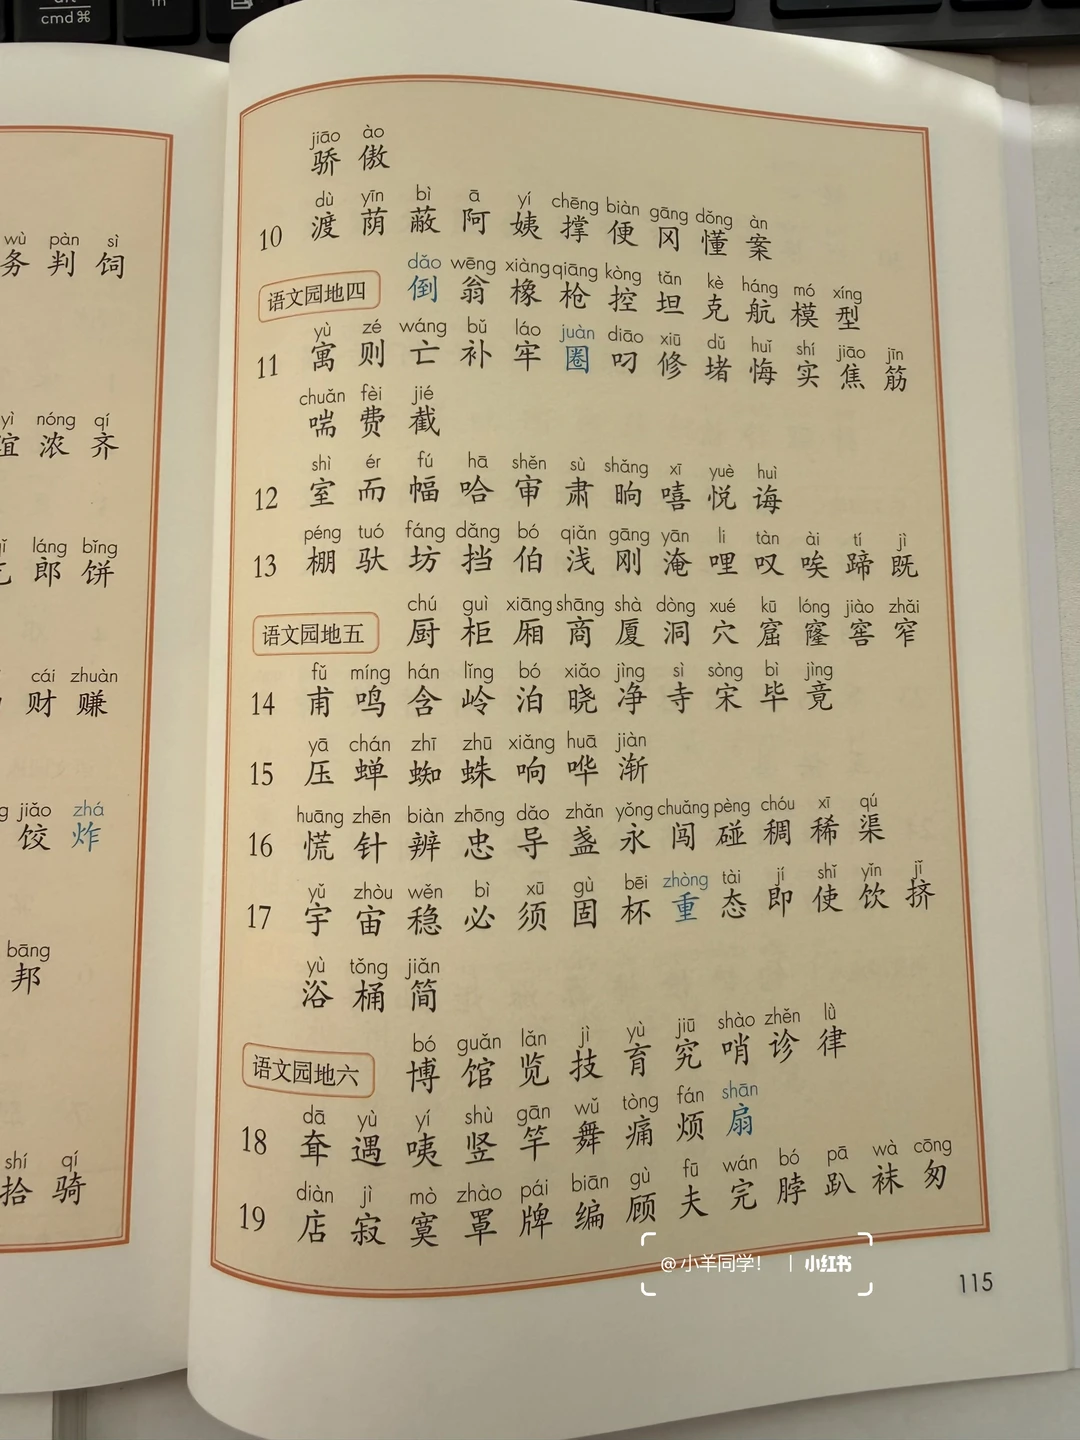 cmd ⌘
wù pàn sì
务 判 饲
yì nóng qí
谊 浓 齐
láng bǐng
郎 饼
cái zhuàn
财 赚
jiǎo zhá
饺 炸
bāng
邦
shí qí
拾 骑
jiāo ào
骄 傲
dù yīn bì ā yí chēng biàn gāng dǒng àn
10 渡 荫 蔽 阿 姨 撑 便 冈 懂 案
dǎo wēng xiàng qiāng kòng tǎn kè háng mó xíng
语文园地四 倒 翁 橡 枪 控 坦 克 航 模 型
yù zé wáng bǔ láo juàn diāo xiū dǔ huǐ shí jiāo jīn
11 寓 则 亡 补 牢 圈 叼 修 堵 悔 实 焦 筋
chuǎn fèi jié
喘 费 截
shì ér fú hā shěn sù shǎng xī yuè huì
12 室 而 幅 哈 审 肃 晌 嘻 悦 诲
péng tuó fáng dǎng bó qiǎn gāng yān li tàn ài tí jì
13 棚 驮 坊 挡 伯 浅 刚 淹 哩 叹 唉 蹄 既
chú guì xiāng shāng shà dòng xué kū lóng jiào zhǎi
语文园地五 厨 柜 厢 商 厦 洞 穴 窟 窿 窖 窄
fǔ míng hán lǐng bó xiǎo jìng sì sòng bì jìng
14 甫 鸣 含 岭 泊 晓 净 寺 宋 毕 竟
yā chán zhī zhū xiǎng huā jiàn
15 压 蝉 蜘 蛛 响 哗 渐
huāng zhēn biàn zhōng dǎo zhǎn yǒng chuǎng pèng chóu xī qú
16 慌 针 辨 忠 导 盏 永 闯 碰 稠 稀 渠
yǔ zhòu wěn bì xū gù bēi zhòng tài jí shǐ yǐn jǐ
17 宇 宙 稳 必 须 固 杯 重 态 即 使 饮 挤
yù tǒng jiǎn
浴 桶 简
bó guǎn lǎn jì yù jiū shào zhěn lǜ
语文园地六 博 馆 览 技 育 究 哨 诊 律
dā yù yí shù gān wǔ tòng fán shān
18 耷 遇 咦 竖 竿 舞 痛 烦 扇
diàn jì mò zhào pái biān gù fū wán bó pā wà cōng
19 店 寂 寞 罩 牌 编 顾 夫 完 脖 趴 袜 匆
@小羊同学! | 小红书
115